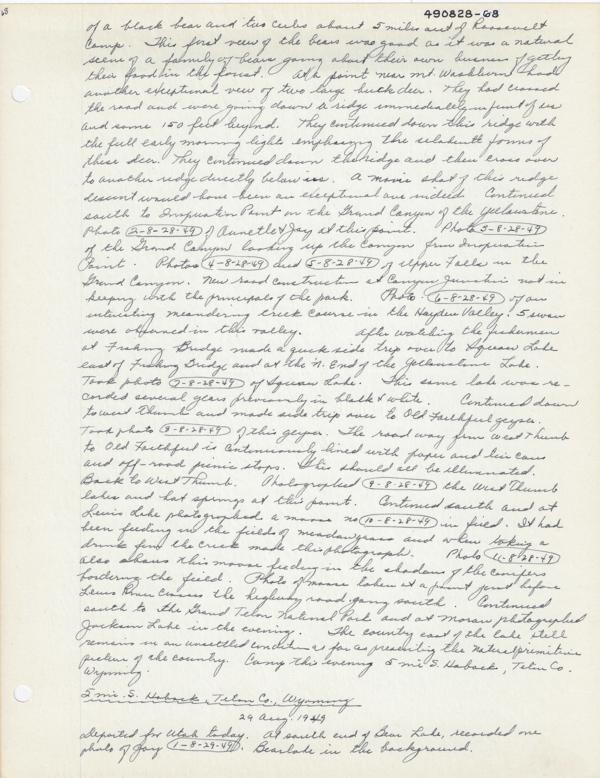 68
490828-68
of a black bear and two cubs about 5 miles out of Roosevelt
Camp. This first view of the bears was good as it was a natural
scene of a family of bears going about their own business of getting
their food in the forest. At a point near Mt. Washburn I had
another exceptional view of two large buck deer. They had crossed
the road and were going down a ridge immediately in front of us
and some 150 feet beyond. They continued down this ridge with
the full early morning light emphasing the silohuett forms of
these deer. They continued down the ridge and then cross over
to another ridge directly below us. A movie shot of this ridge
descent would have been an exceptional one indeed. Continued
south to Inspiration Point on the Grand Canyon of the Yellowstone.
Photo (2-8-28-49) of Annetle & Jay at this point. Photo (3-8-28-49)
of the Grand Canyon looking up the Canyon from Inspiration
Point. Photos (4-8-28-49) and (5-8-28-49) of Upper Falls in the
Grand Canyon. New road construction at Canyon Junction not in
keeping with the principals of the park. Photo (6-8-28-49) of an
interesting meandering creek course in the Hayden Valley. 5 swan
were observed in this valley. After watching the fishermen
at Fishing Bridge made a quick side trip over to Squaw Lake
east of Fishing Bridge and at the N. End of the Yellowstone Lake.
Took photo (7-8-28-49) of Squaw Lake. This same lake was re-
corded several years previously in black & white. Continued down
to West Thumb and made side trip over to Old Faithful geyser.
Took photo (8-8-28-49) of this geyser. The road way from West Thumb
to Old Faithful is continuously lined with paper and beer cans
and off-road picnic stops. This should all be illuminated.
Back to West Thumb. Photographed (9-8-28-49) the West Thumb
lakes and hot springs at this point. Continued south and at
Lewis Lake photographed a moose no (10-8-28-49) in field. It had
been feeding in the fields of meadow grass and when taking a
drink from the creek made this photograph. Photo (11-8-28-49)
also shows this moose feeding in the shadows of the conifers
bordering the field. Photo of moose taken at a point just before
Lewis River crosses the highway road going south. Continued
south to the Grand Teton National Park and at Moran photographed
Jackson Lake in the evening. The country east of the lake still
remains in an unsettled condition as far as presenting the natural primitive
picture of the country. Camp this evening 5 mi S. Hoback, Teton Co.
Wyoming.
5 mi. S. Hoback, Teton Co., Wyoming
29 Aug. 1949
Departed for Utah today. At south end of Bear Lake, recorded one
photo of Jay (1-8-29-49). Bear lake in the background.